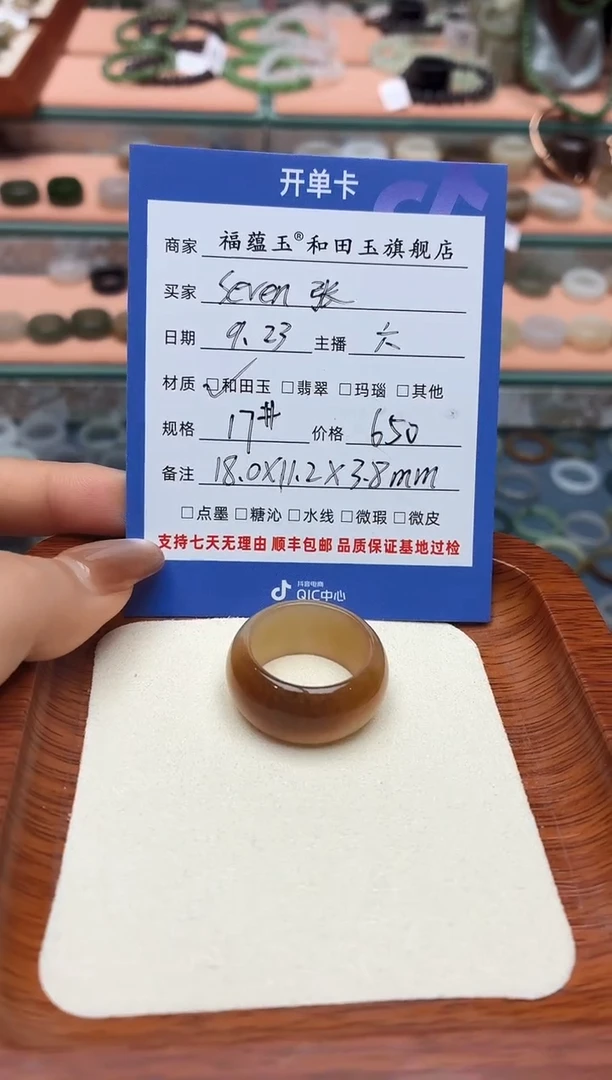 开单卡
商家 福蕴玉®和田玉旗舰店
买家 Seven 张
日期 9.23 主播 六
材质 ☑和田玉 □翡翠 □玛瑙 □其他
规格 17# 价格 650
备注 18.0X11.2X3.8mm
□点墨 □糖沁 □水线 □微瑕 □微皮
支持七天无理由 顺丰包邮 品质保证基地过检
抖音电商
QIC中心